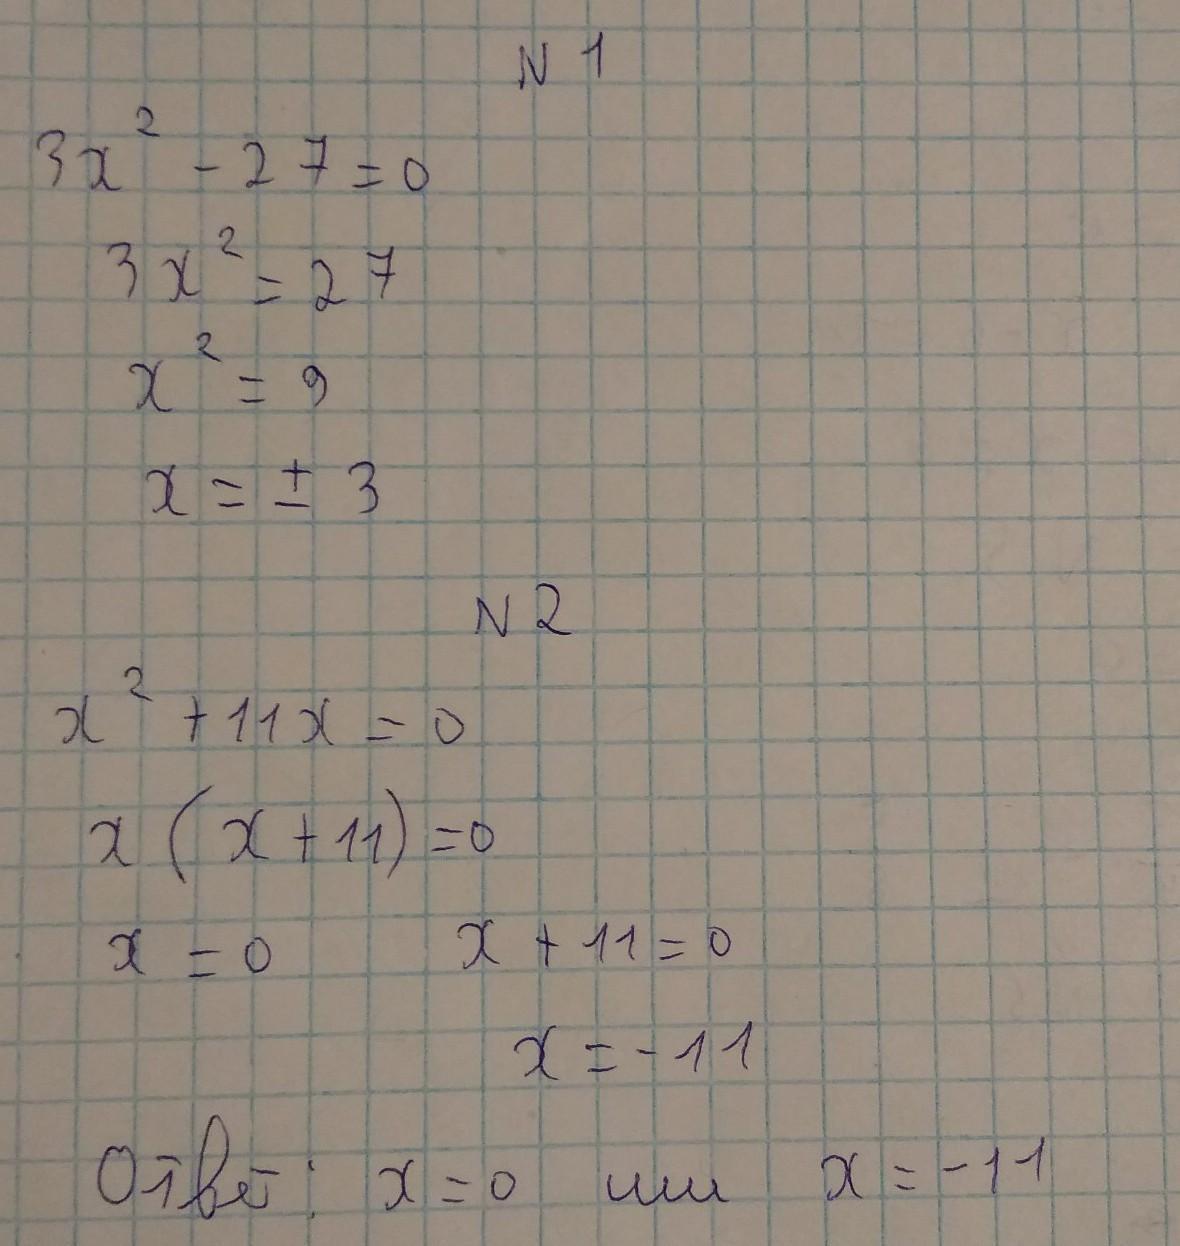 N 1
3x² - 27 = 0
3x² = 27
x² = 9
x = ± 3
N 2
x² + 11x = 0
x (x + 11) = 0
x = 0 x + 11 = 0
x = -11
Ответ: x = 0 или x = -11